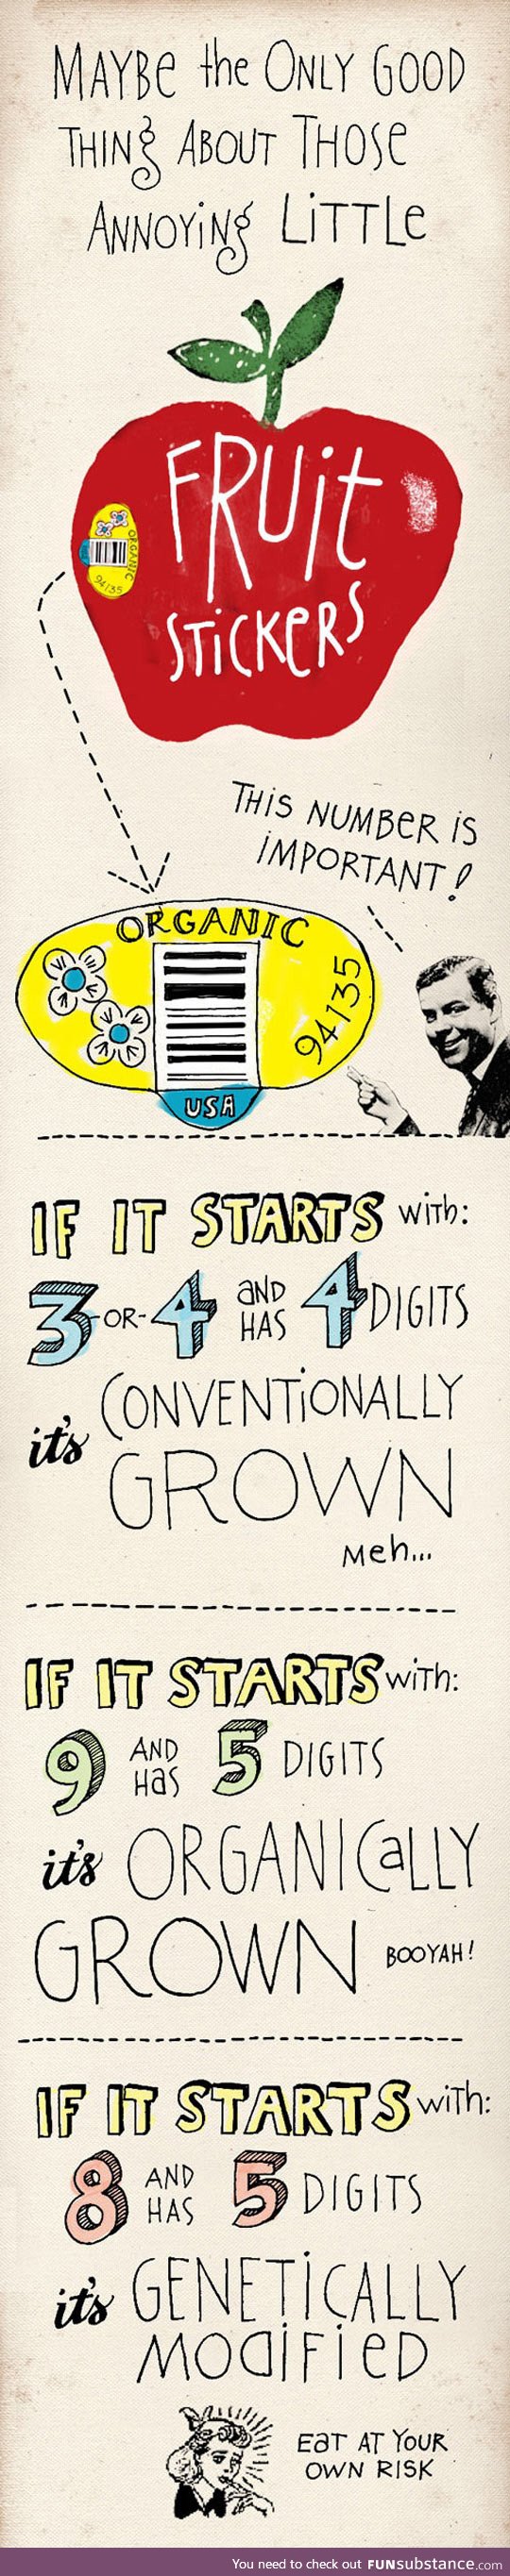 MAYBE the ONLY GOOD
THING ABOUT THOSE
ANNOYiNG LiTTLe
FRUit
STiCKeRS
ORGANIC
94135
THiS NUMBeR iS
iMPORTANT!
ORGANIC
94135
USA
IF IT STARTS with:
3 -OR- 4 aND HAS 4 DIGITS
it's CONVENTiONALLY
GROWN
Meh...
IF IT STARTS with:
9 AND HaS 5 DIGITS
it's ORGANICaLLY
GROWN BOOYAH!
IF IT STARTS with:
8 AND HAS 5 DIGITS
it's GENETiCALLY
MODiFieD
EaT AT YOUR
OWN RISK
You need to check out FUNsubstance.com